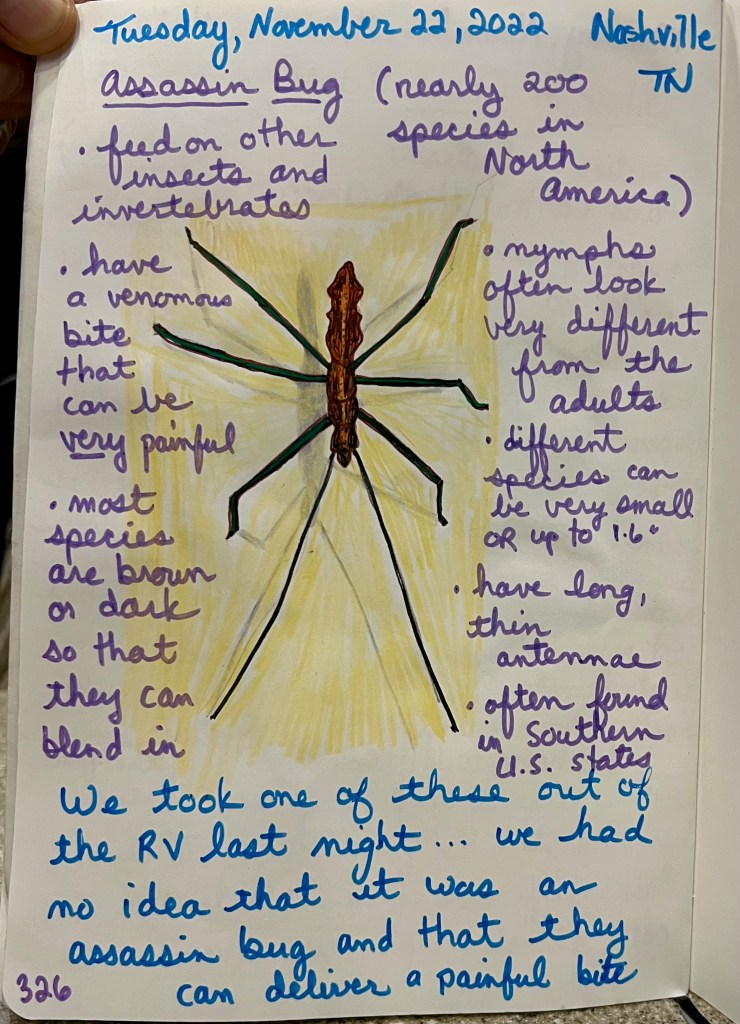 Tuesday, November 22, 2022 Nashville
TN
Assassin Bug (nearly 200
species in
North
America)
• feed on other
insects and
invertebrates
• have
a venomous
bite
that
can be
very painful
• most
species
are brown
or dark
so that
they can
blend in
• nymphs
often look
very different
from the
adults
• different
species can
be very small
OR up to 1.6"
• have long,
thin
antennae
• often found
in Southern
U.S. states
We took one of these out of
the RV last night... we had
no idea that it was an
assassin bug and that they
can deliver a painful bite
326